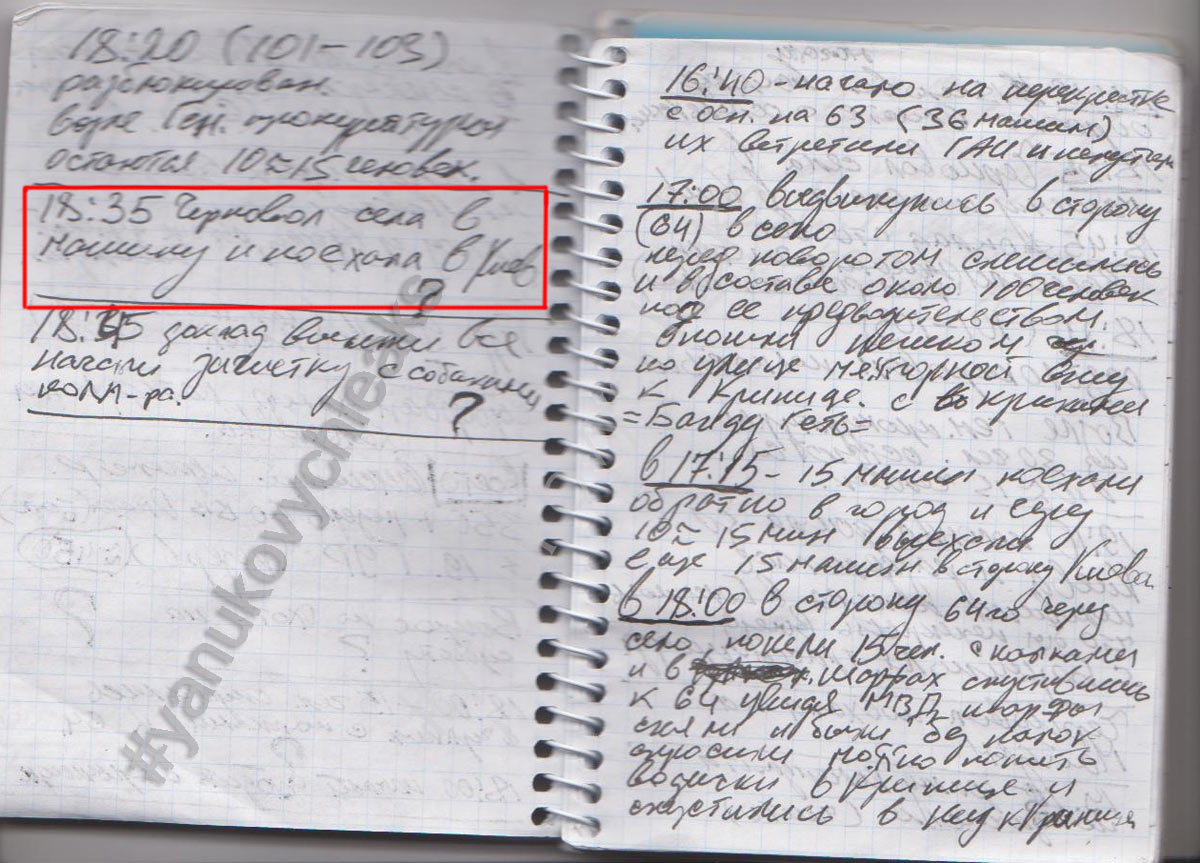 18:20 (101-103)
разблокирован.
возле Ген. прокуратуры
остаются 10-15 человек.
18:35 Чорновол села в
машину и поехала в Киев
?
18:45 заклад все
начали зачистку с собаками
?
#yanukovychleaks
16:40 - начало на перекрестке
с осн. на 63 (36 машин)
их встретили ГАИ и
17:00 выдвинулись в сторону
(64) в село
перед поворотом спешились
и в составе около 100 человек
под ее предводительством.
пошли пешком
по улице вниз
к Кринице. с выкриками
=Банду Геть=
в 17:15 - 15 машин поехали
обратно в город и через
10-15 мин выехали
еще 15 машин в сторону Киева
в 18:00 в сторону 64го через
село пошли 15 чел. с палками
и в шарфах спустившись
к 64 увидя МВД шарфы
сняли и были без палок
спросили можно попить
водички в кринице и
спустились вниз к кринице